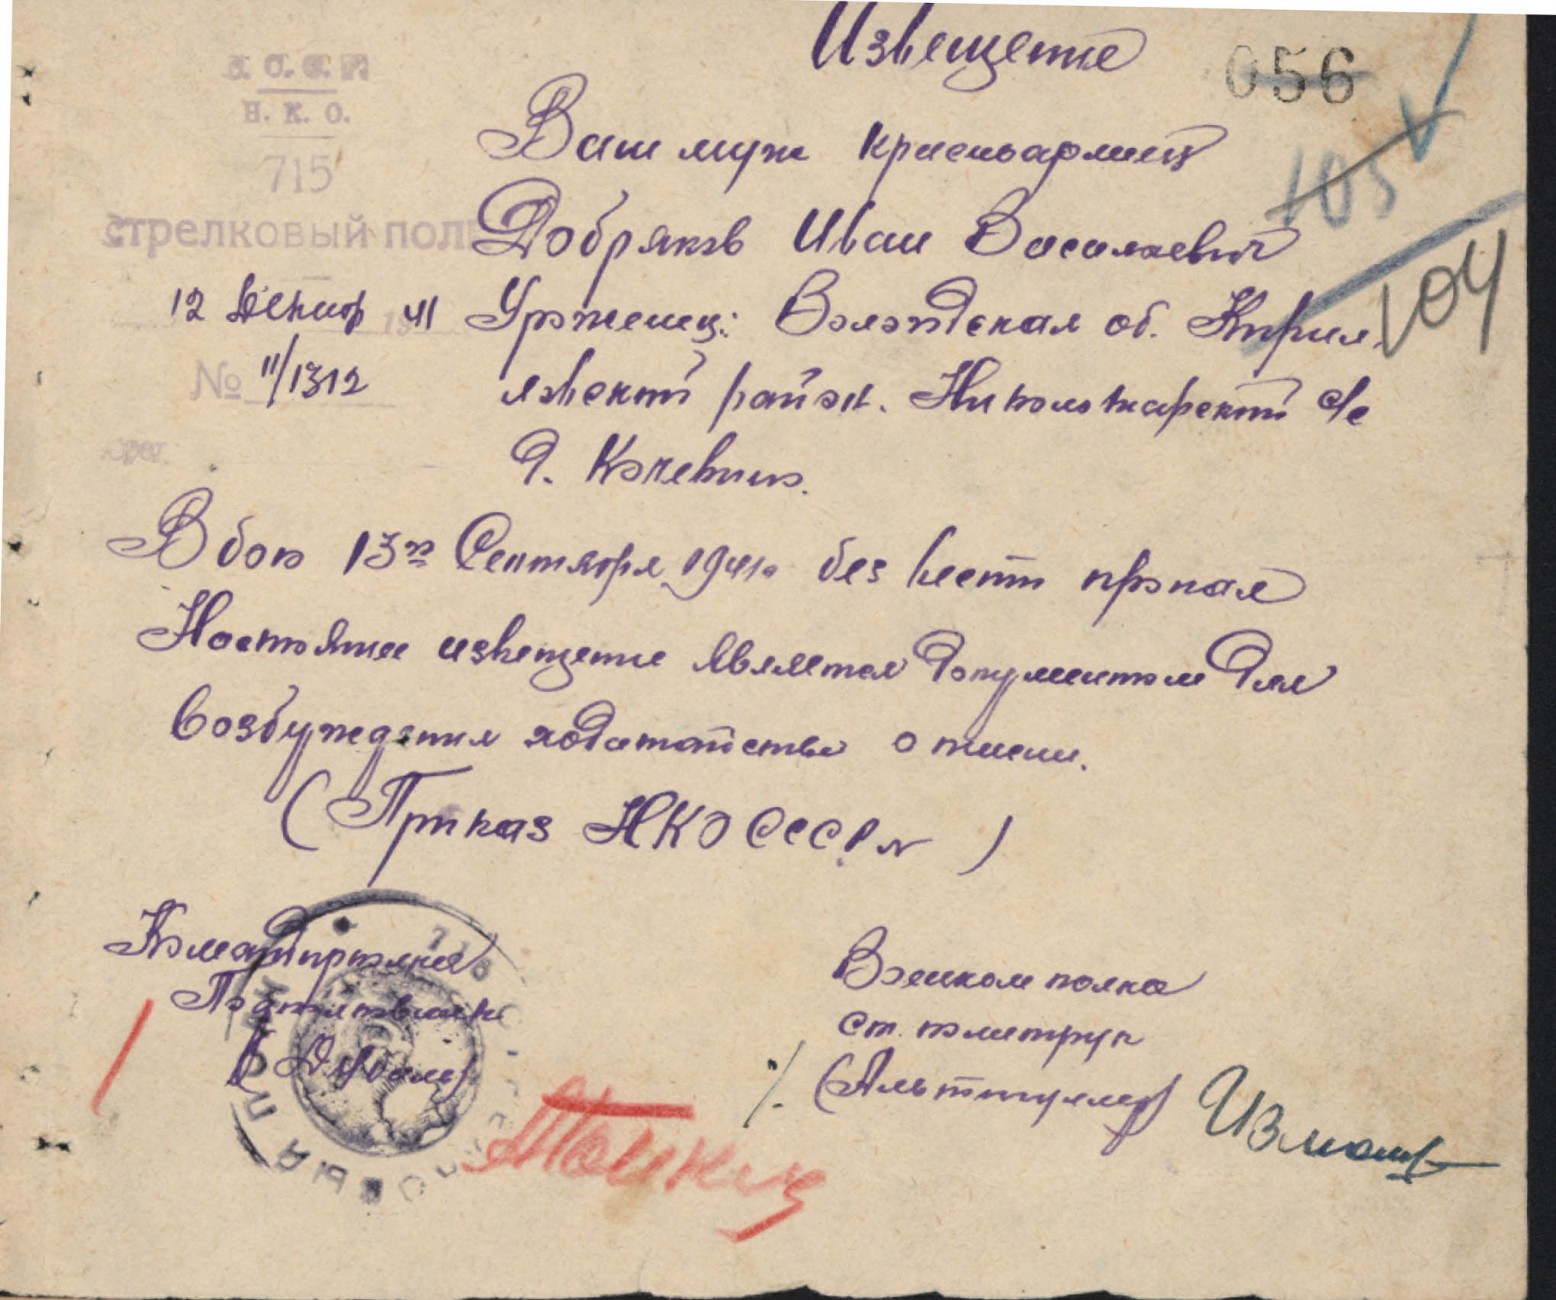 Извещение
056
С.С.С.Р.
Н. К. О.
715
стрелковый полк
12 Декабр 41
№ 11/1312
105
104
Ваш муж красноармеец
Добряков Иван Васильевич
Уроженец: Вологодская об. Кирил
ловский район. Николоторжский с/с
д. Кочевино.
В бою 13го Сентября 1941г. без вести пропал
Настоящее извещение является документом для
возбуждения ходатайства о пенсии.
(Приказ НКО СССР № )
Командир полка
Подполковник
Военком полка
ст. политрук
(Альтшуллер)